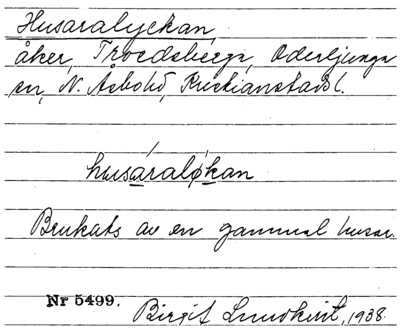 Husaralyckan,
åker, Troedsberga, Oderljunga
sn, N. Åsbohd, Kristianstads l.
husaraløkan
Brukats av en gammal husar.
Nr 5499.
Birgit Lundkvist, 1938.